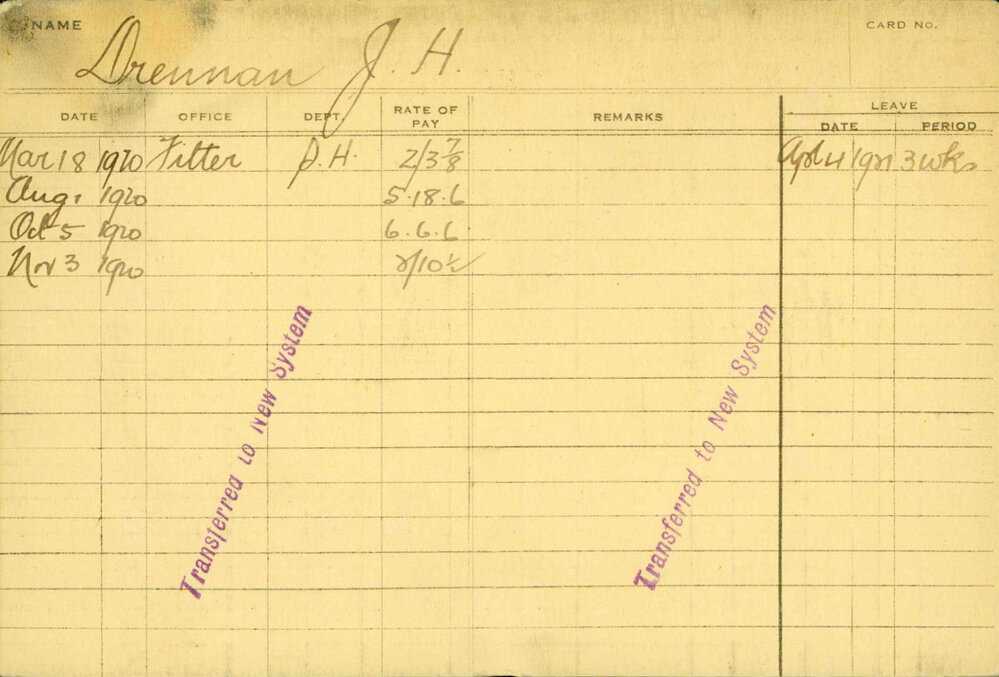 NAME CARD No.
Drennan J. H.
DATE OFFICE DEPT. RATE OF PAY REMARKS LEAVE
DATE PERIOD
Mar 18 1920 Fitter P.H. 2/3 7/8 Apl 4 1921 3 wks
Aug 1 1920 5.18.6
Oct 5 1920 6.6.6
Nov 3 1920 2/10 1/2
Transferred to New System
Transferred to New System